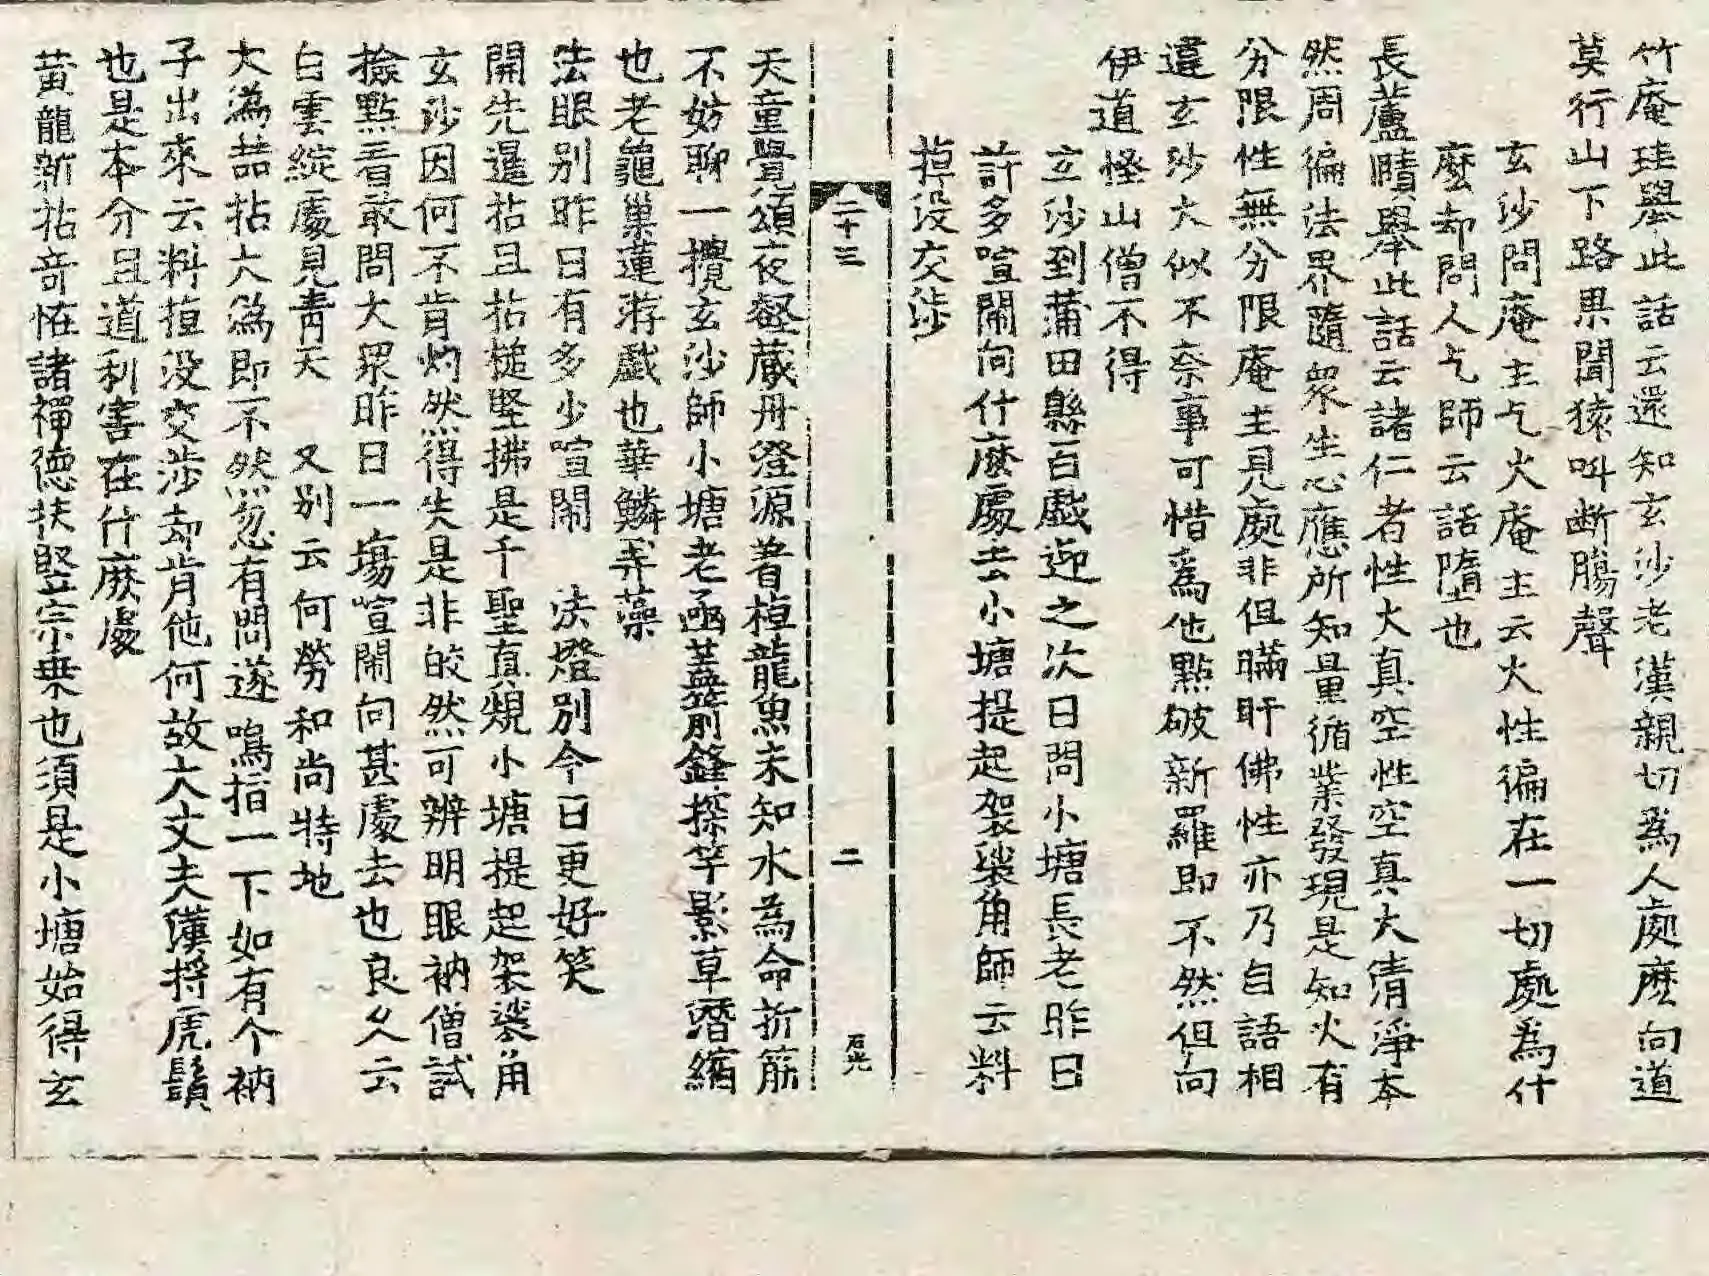 竹庵珪擧此話云還知玄沙老漢親切爲人處麽向道
莫行山下路果聞猿呌断膓聲
玄沙問庵主乞火庵主云火性徧在一切處爲什
麽却問人乞師云話墮也
長蘆賾擧此話云諸仁者性大真空性空真大清淨本
然周徧法界隨衆生心應所知量循業發現是知火有
分限性無分限庵主見處非但瞞旰佛性亦乃自語相
違玄沙大似不奈事可惜爲他點破新羅即不然但向
伊道怪山僧不得
玄沙到蒲田縣百戱迎之次日問小塘長老昨日
許多喧鬧向什麽處去小塘提起袈裟角師云料
掉没交涉
二十三
二
石光
天童覺頌夜壑蔵舟澄源著棹龍魚未知水為命折筋
不妨聊一攪玄沙師小塘老凾蓋箭鋒探竿影草潛縮
也老龜巢蓮游戱也華鱗弄藻
法眼别昨日有多少喧鬧 法燈别今日更好笑
開先暹拈且拈槌竪拂是千聖真䂓小塘提起袈裟角
玄沙因何不肯灼然得失是非皎然可辨明眼衲僧試
撿點看敢問大眾昨日一塲喧鬧向甚處去也良久云
白雲綻處見青天 又别云何勞和尚特地
大潙喆拈大潙即不然忽有問遂鳴指一下如有个衲
子出來云料掉没交涉却肯他何故大丈夫漢捋虎鬚
也是本分且道利害在什麽處
黄龍新拈竒恠諸禪德扶竪宗乗也須是小塘始得玄